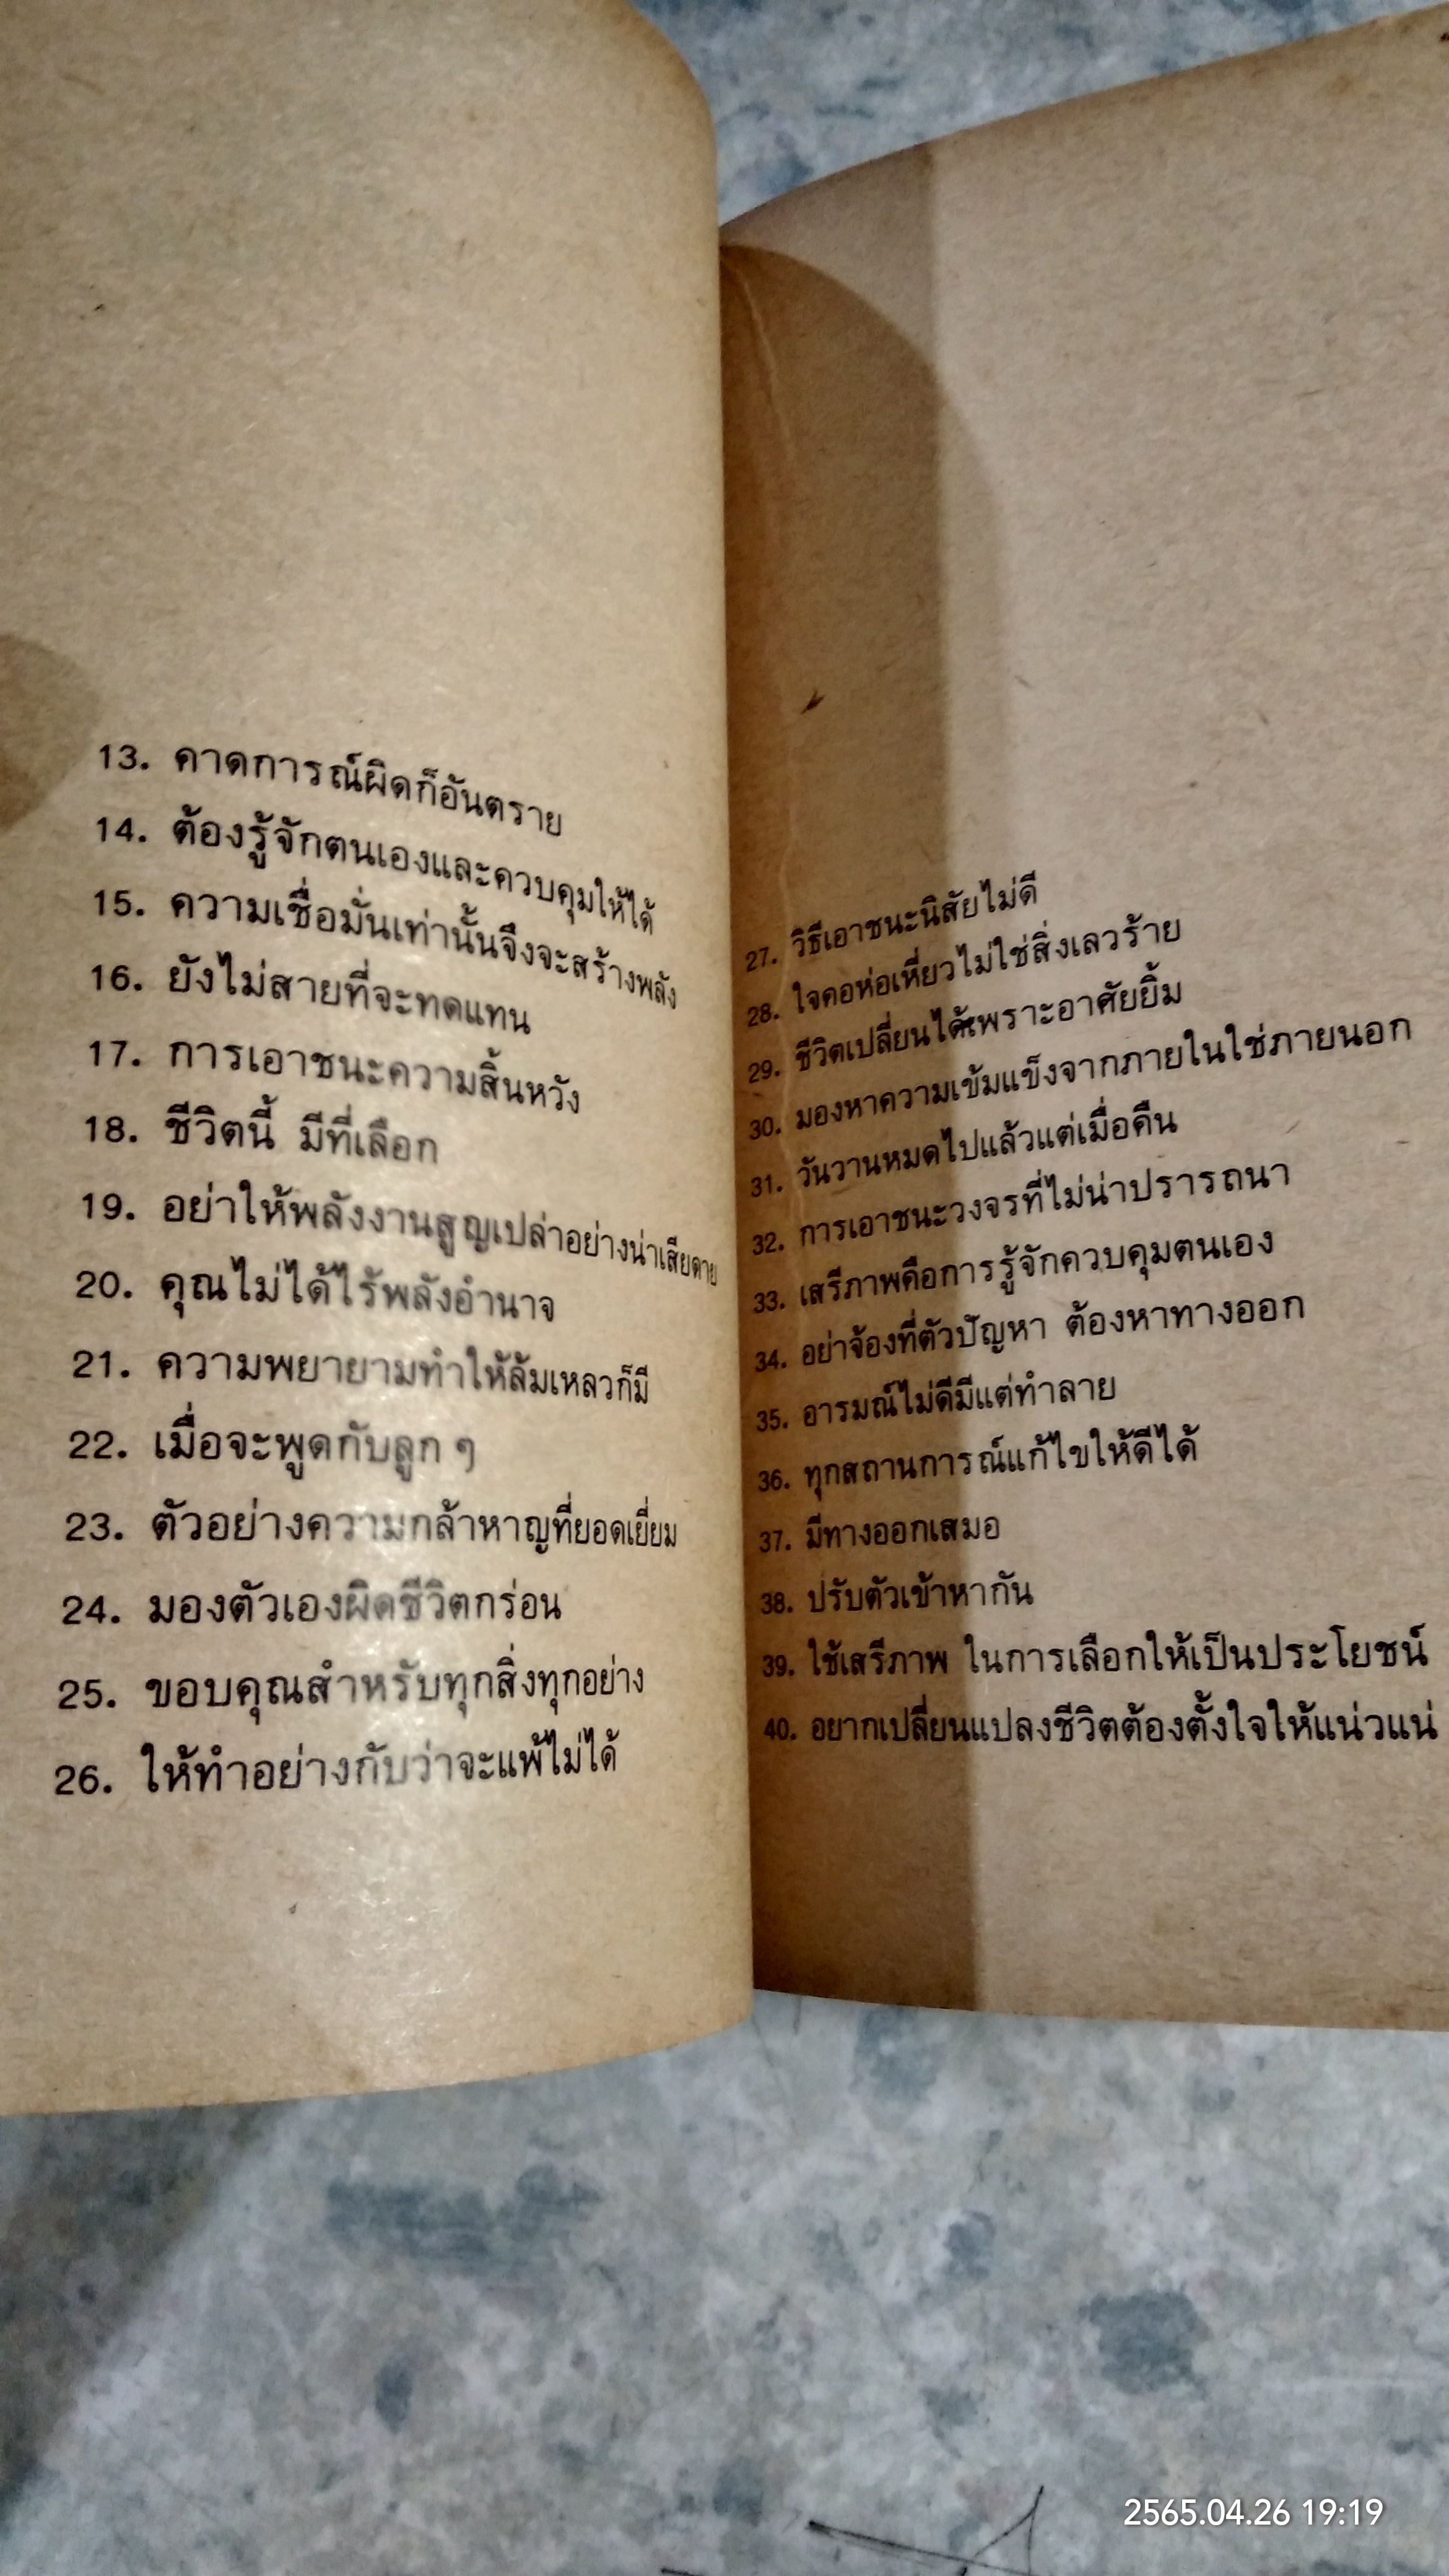 13. คาดการณ์ผิดก็อันตราย
14. ต้องรู้จักตนเองและควบคุมให้ได้
15. ความเชื่อมั่นเท่านั้นจึงจะสร้างพลัง
16. ยังไม่สายที่จะทดแทน
17. การเอาชนะความสิ้นหวัง
18. ชีวิตนี้ มีที่เลือก
19. อย่าให้พลังงานสูญเปล่าอย่างน่าเสียดาย
20. คุณไม่ได้ไร้พลังอำนาจ
21. ความพยายามทำให้ล้มเหลวก็มี
22. เมื่อจะพูดกับลูก ๆ
23. ตัวอย่างความกล้าหาญที่ยอดเยี่ยม
24. มองตัวเองผิดชีวิตกร่อน
25. ขอบคุณสำหรับทุกสิ่งทุกอย่าง
26. ให้ทำอย่างกับว่าจะแพ้ไม่ได้
27. วิธีเอาชนะนิสัยไม่ดี
28. ใจคอห่อเหี่ยวไม่ใช่สิ่งเลวร้าย
29. ชีวิตเปลี่ยนได้เพราะอาศัยยิ้ม
30. มองหาความเข้มแข็งจากภายในใช่ภายนอก
31. วันวานหมดไปแล้วแต่เมื่อคืน
32. การเอาชนะวงจรที่ไม่น่าปรารถนา
33. เสรีภาพคือการรู้จักควบคุมตนเอง
34. อย่าจ้องที่ตัวปัญหา ต้องหาทางออก
35. อารมณ์ไม่ดีมีแต่ทำลาย
36. ทุกสถานการณ์แก้ไขให้ดีได้
37. มีทางออกเสมอ
38. ปรับตัวเข้าหากัน
39. ใช้เสรีภาพ ในการเลือกให้เป็นประโยชน์
40. อยากเปลี่ยนแปลงชีวิตต้องตั้งใจให้แน่วแน่
2565.04.26 19:19